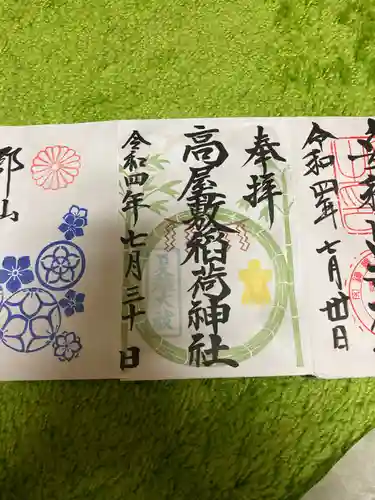 奉拝
高屋敷稲荷神社
令和四年七月三十日
令和四年七月卅日
郡山